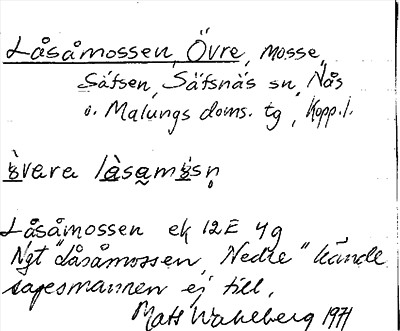 Låsåmossen, Övre, mosse,
Säfsen, Säfsnäs sn, Nås
o. Malungs doms. tg, Kopp. l.
Låsåmossen ek 12E 4g
Ngt "Låsåmossen, Nedre" kände
sagesmannen ej till.
Mats Wahlberg 1971